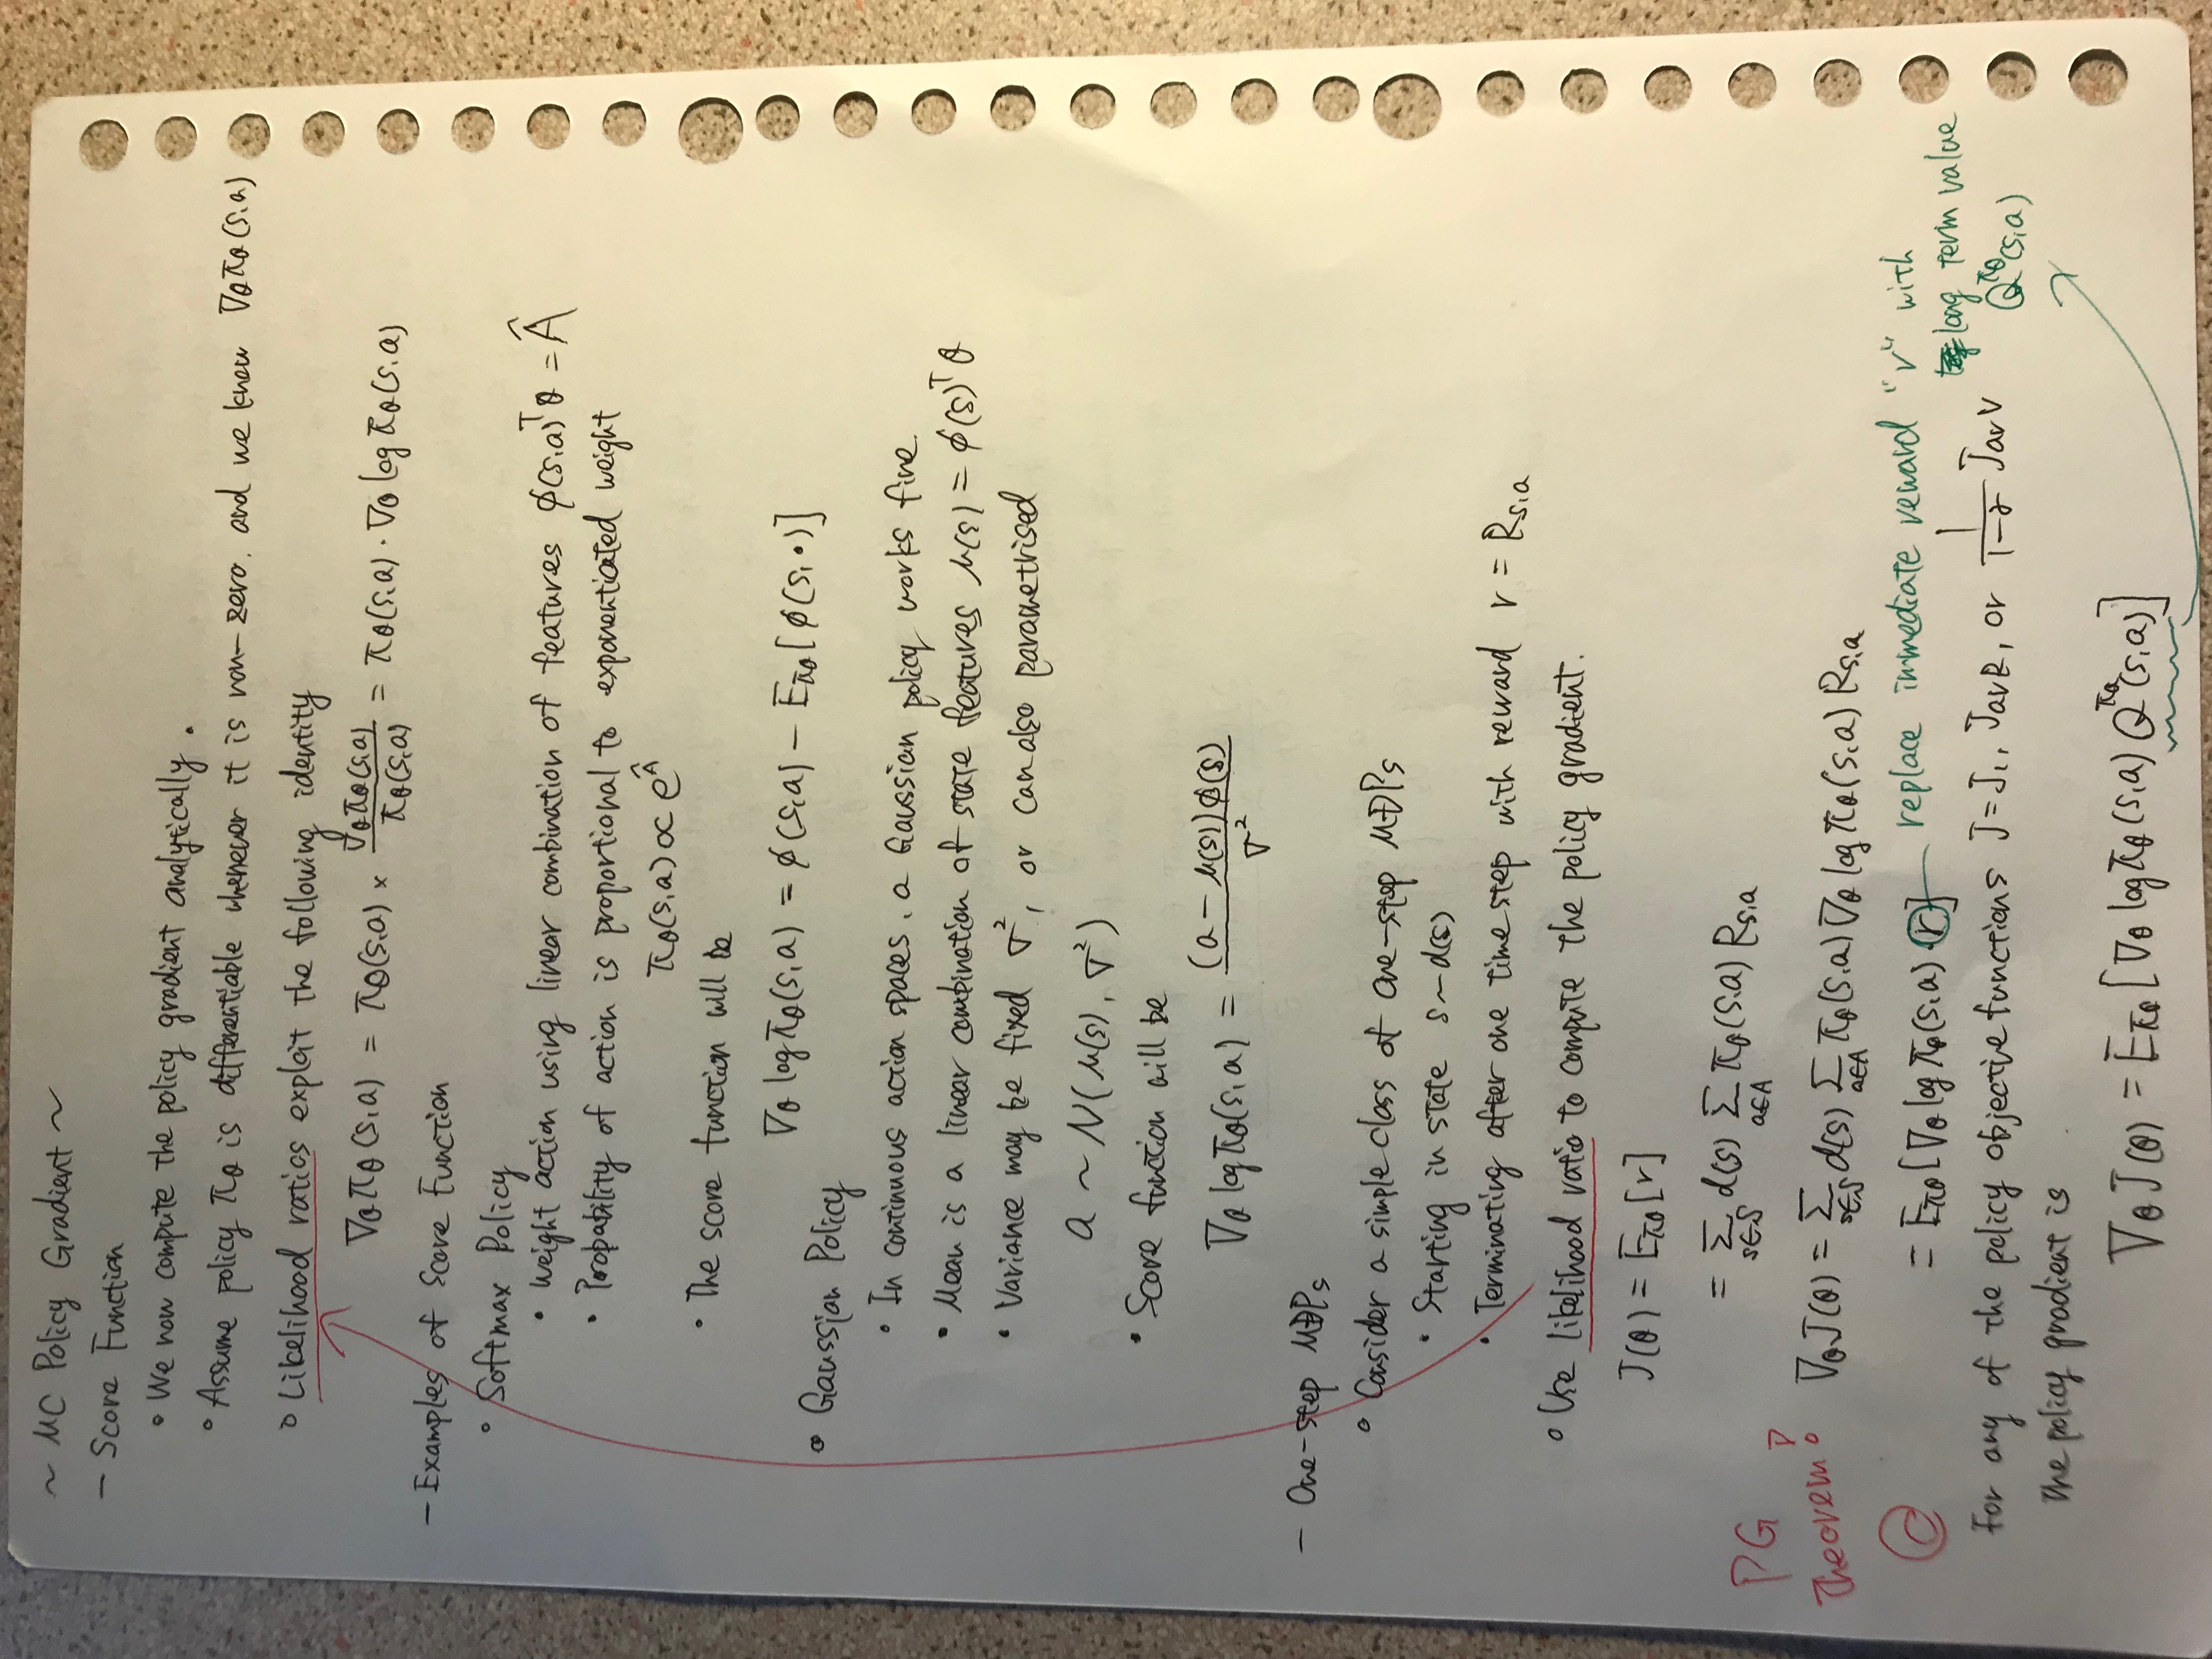 ~ MC Policy Gradient ~
- Score Function
∘ We now compute the policy gradient analytically.
∘ Assume policy πθ is differentiable whenever it is non-zero, and we know ∇θπθ(s,a)
∘ Likelihood ratios exploit the following identity
∇θπθ(s,a) = πθ(s,a) × ∇θπθ(s,a) / πθ(s,a) = πθ(s,a) · ∇θ log πθ(s,a)
- Examples of Score Function
∘ Softmax Policy
• Weight action using linear combination of features φ(s,a)ᵀθ = Â
• Probability of action is proportional to exponentiated weight
πθ(s,a) ∝ e^Â
• The score function will be
∇θ log πθ(s,a) = φ(s,a) - Eπθ[φ(s,•)]
∘ Gaussian Policy
• In continuous action spaces, a Gaussian policy works fine.
• Mean is a linear combination of state features μ(s) = φ(s)ᵀθ
• Variance may be fixed σ², or can also parametrised
a ~ N(μ(s), σ²)
• Score function will be
∇θ log πθ(s,a) = (a - μ(s))φ(s) / σ²
- One-step MDPs
∘ Consider a simple class of one-step MDPs
• Starting in state s~d(s)
• Terminating after one time step with reward r = Rs,a
∘ Use likelihood ratio to compute the policy gradient.
J(θ) = Eπθ[r]
= Σs∈S d(s) Σa∈A πθ(s,a) Rs,a
PG
Theorem!
∇θJ(θ) = Σs∈S d(s) Σa∈A πθ(s,a) ∇θ log πθ(s,a) Rs,a
= Eπθ[∇θ log πθ(s,a) · r]
replace immediate reward "r" with
long term value
Q^πθ(s,a)
For any of the policy objective functions J=J₁, JavR, or 1/(1-γ) JavV
the policy gradient is
∇θJ(θ) = Eπθ[∇θ log πθ(s,a) Q^πθ(s,a)]